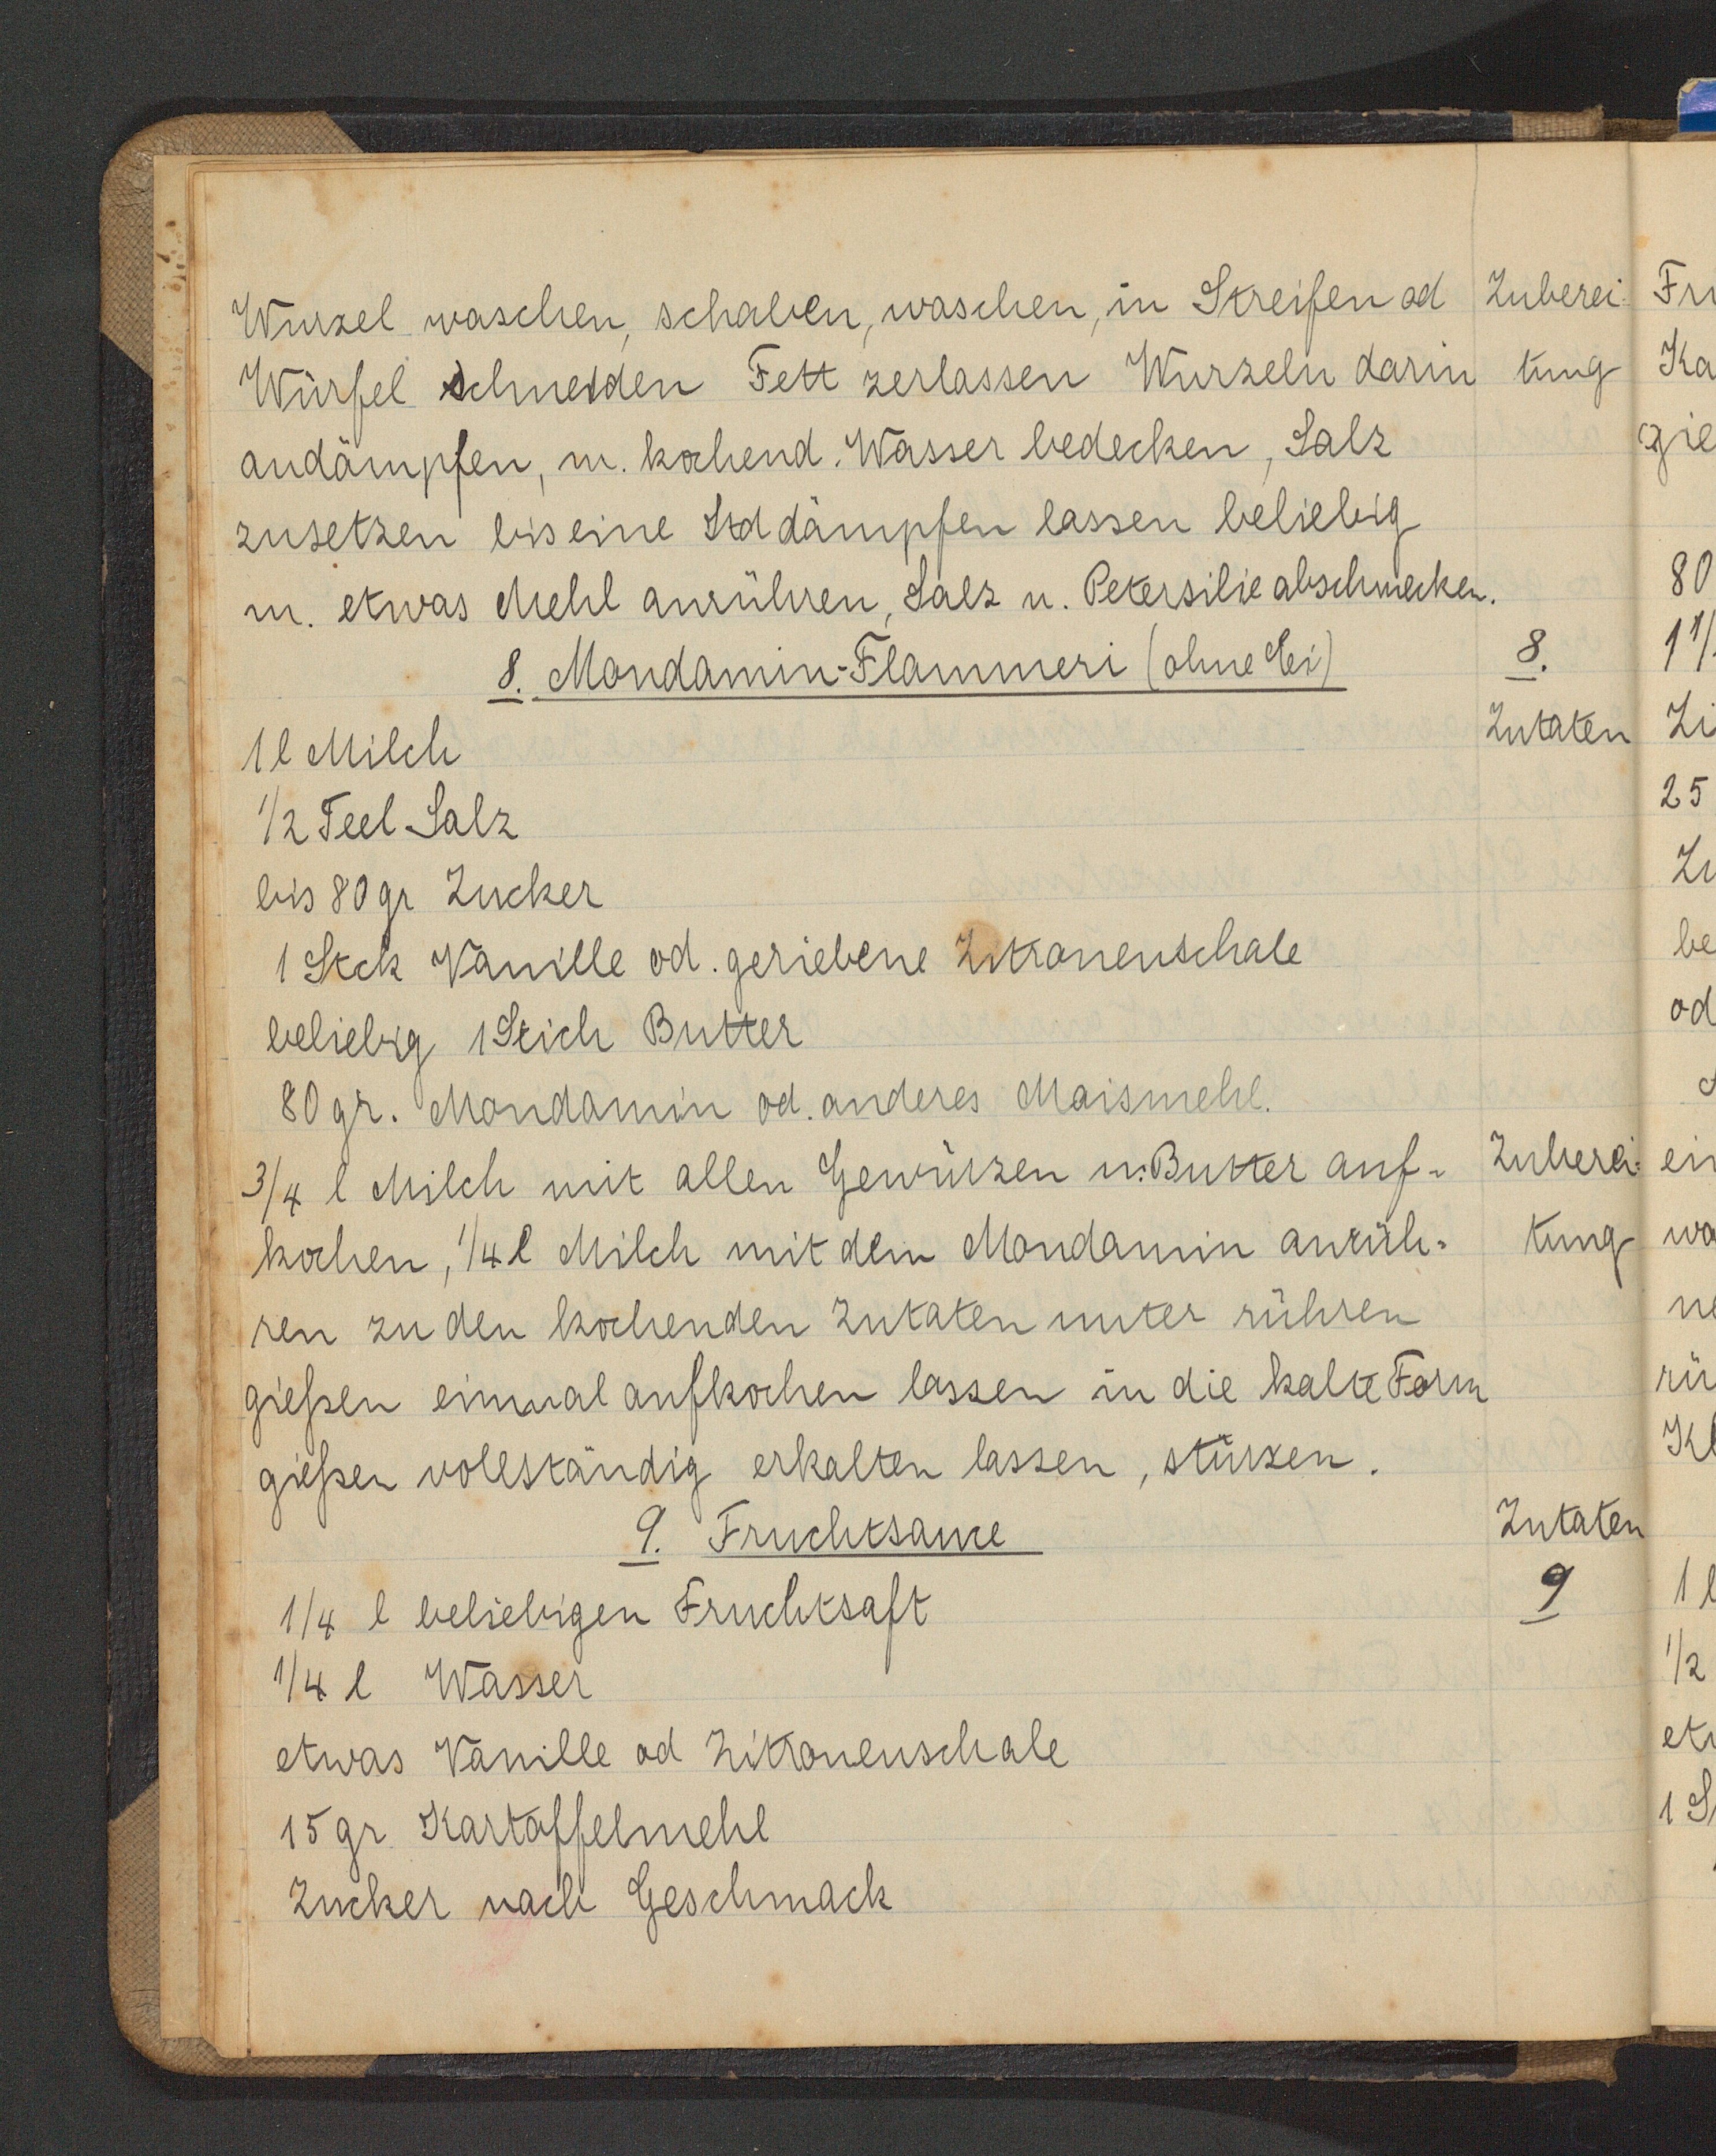 Wurzel waschen, schaben, waschen, in Streifen od Zuberei-
Würfel schneiden Fett zerlassen Wurzeln darin tung
andämpfen, m. kochend. Wasser bedecken, Salz
zusetzen bis eine Std dämpfen lassen beliebig
m. etwas Mehl anrühren, Salz u. Petersilie abschmecken.
8. Mondamin-Flammeri (ohne Ei) 8.
Zutaten
1 l Milch
1/2 Teel Salz
bis 80 gr Zucker
1 Stck Vanille od. geriebene Zitronenschale
beliebig 1 Stich Butter
80 gr. Mondamin od. anderes Maismehl.
3/4 l Milch mit allen Gewürzen u. Butter auf- Zuberei-
kochen, 1/4 l Milch mit dem Mondamin anrüh- tung
ren zu den kochenden Zutaten unter rühren
gießen einmal aufkochen lassen in die kalte Form
gießen vollständig erkalten lassen, stürzen.
9. Fruchtsauce Zutaten
1/4 l beliebigen Fruchtsaft 9
1/4 l Wasser
etwas Vanille od Zitronenschale
15 gr. Kartoffelmehl
Zucker nach Geschmack
Fru
Ka
gie
80
1 1/
Zi
25
Zu
be
od
ein
wa
ne
rü
Kl
1 l
1/2
etw
1 S